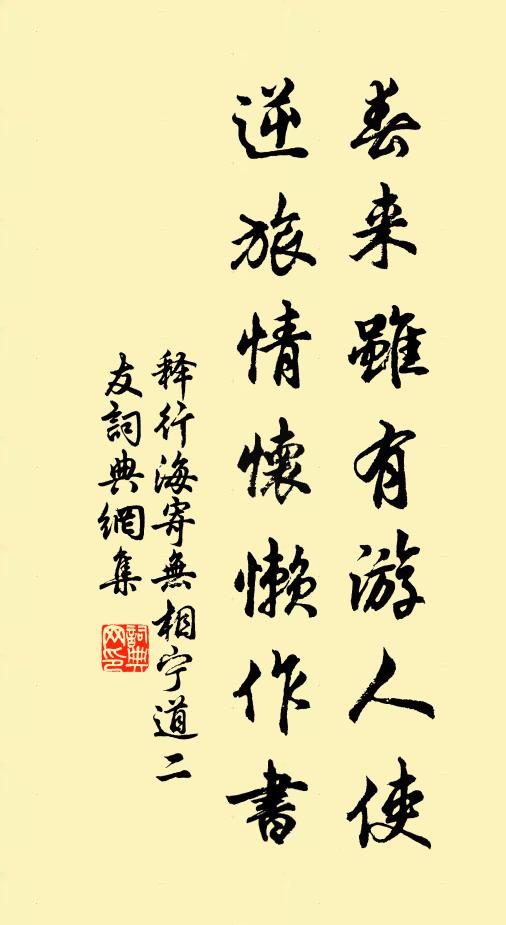 春来雖有游人使
逆旅情懷懶作書
释行海寄無相宁道二
友詞典網集
詞典
网印